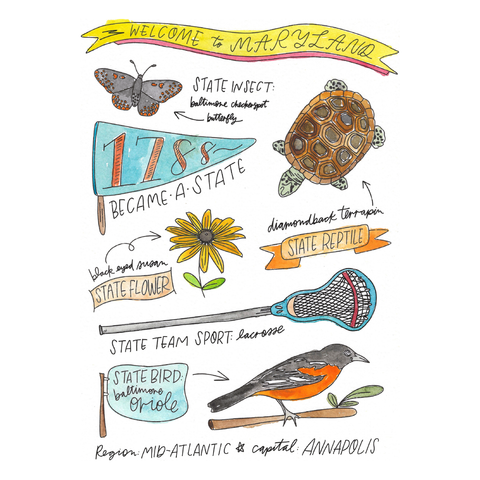 WELCOME to MARYLAND
STATE INSECT:
baltimore checkerspot
butterfly
1788
BECAME·A·STATE
diamondback terrapin
STATE REPTILE
black eyed susan
STATE FLOWER
STATE TEAM SPORT: lacrosse
STATE BIRD:
baltimore
oriole
Region: MID-ATLANTIC ☆ capital: ANNAPOLIS